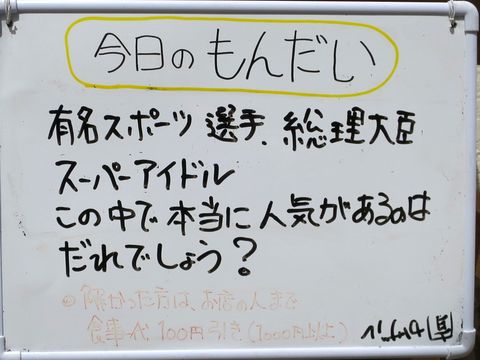 今日のもんだい
有名スポーツ選手、総理大臣
スーパーアイドル
この中で本当に人気があるのは
だれでしょう？
◎解かった方は、お店の人まで
食事代100円引き(1000円以上)